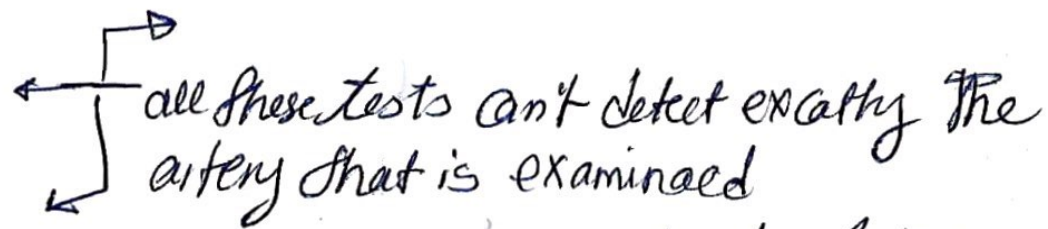 all these tests can't detect excatly the
artery that is examinaed